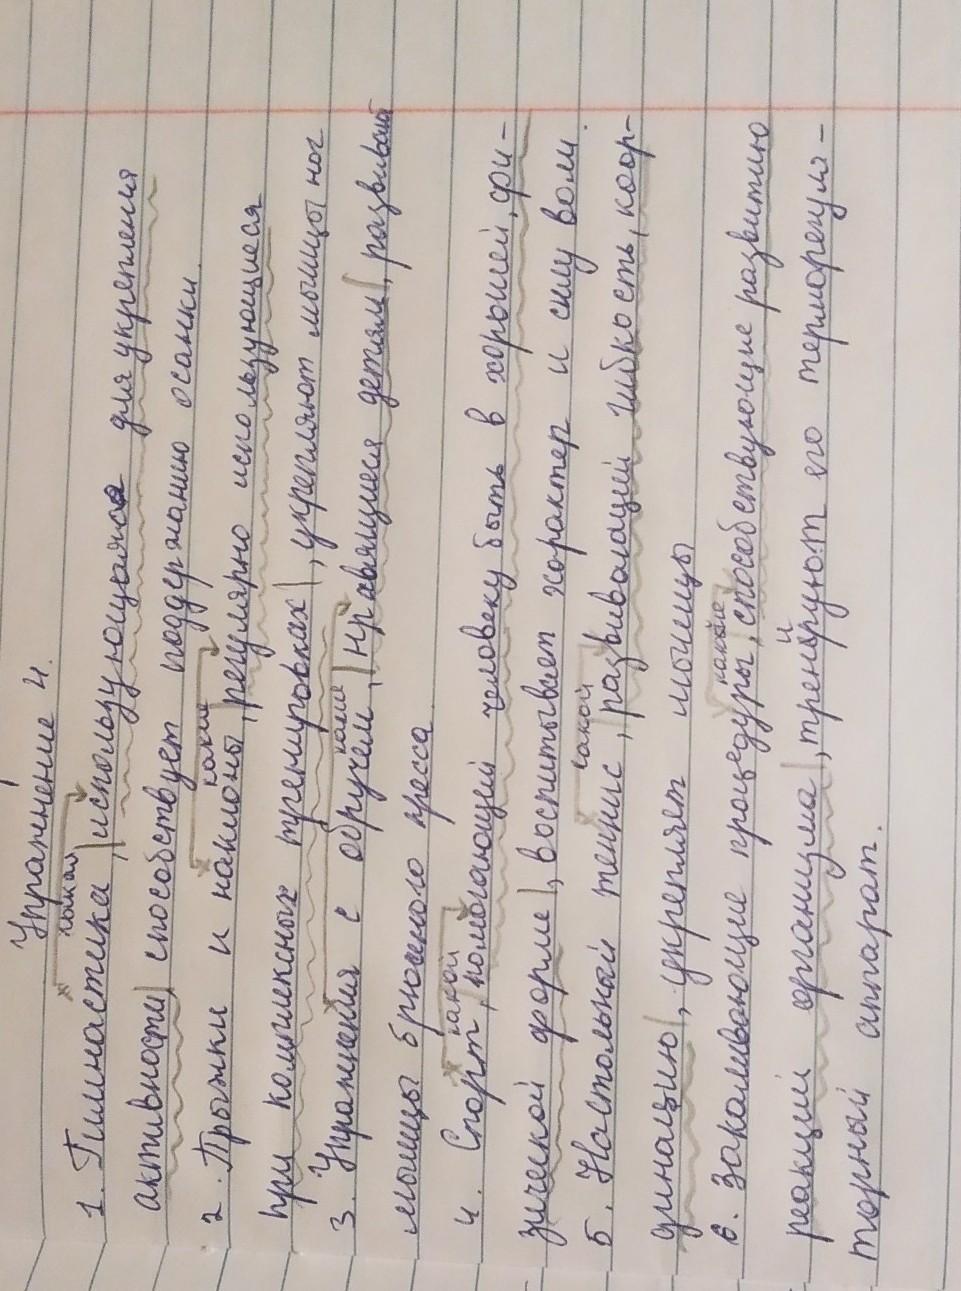 Упражнение 4.
какая
1. Гимнастика, использующаяся для укрепления
активности, способствует поддержанию осанки.
какие
2. Прыжки и наклоны, регулярно использующиеся
при комплексных тренировках, укрепляют мышцы ног
какие
3. Упражнения с обручем, нравящиеся детям, развивают
мышцы брюшного пресса
какой
4. Спорт, помогающий человеку быть в хорошей фи-
зической форме, воспитывает характер и силу воли.
какой
5. Настольный теннис, развивающий гибкость, коор-
динацию, укрепляет мышцы
какие
6. Закаливающие процедуры, способствующие развитию
реакций организма, тренируют его терморегуля-
торный аппарат.